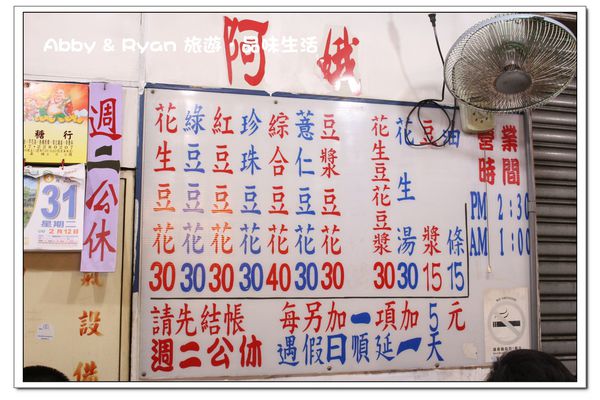 Abby & Ryan 旅遊 品味生活
阿娥
花生豆花 30
綠豆豆花 30
紅豆豆花 30
珍珠豆花 30
綜合豆花 40
薏仁豆花 30
豆漿豆花 30
花生豆花豆漿 30
花生湯 30
豆漿 15
油條 15
請先結帳 每另加一項加5元
週二公休 遇假日順延一天
營業時間
PM 2:30
AM 1:00
週二公休
糖行
31
星期二
2月12日
氣設備